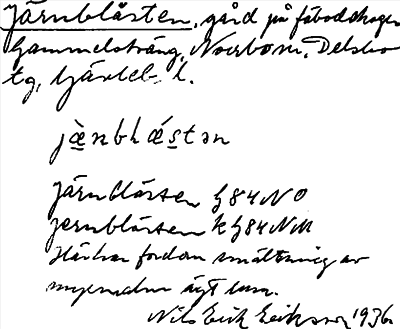 Järnblästen, gård på fäbodskogen
Gammelsträng, Norrbom, Delsbo
tg, Gävleb. l.
jæ̀nblǽstən
Järnblästen G84NO
Jernblästen k G84NM
Här har fordom smältning av
myrmalm ägt rum.
Nils Erik Eriksson 1936